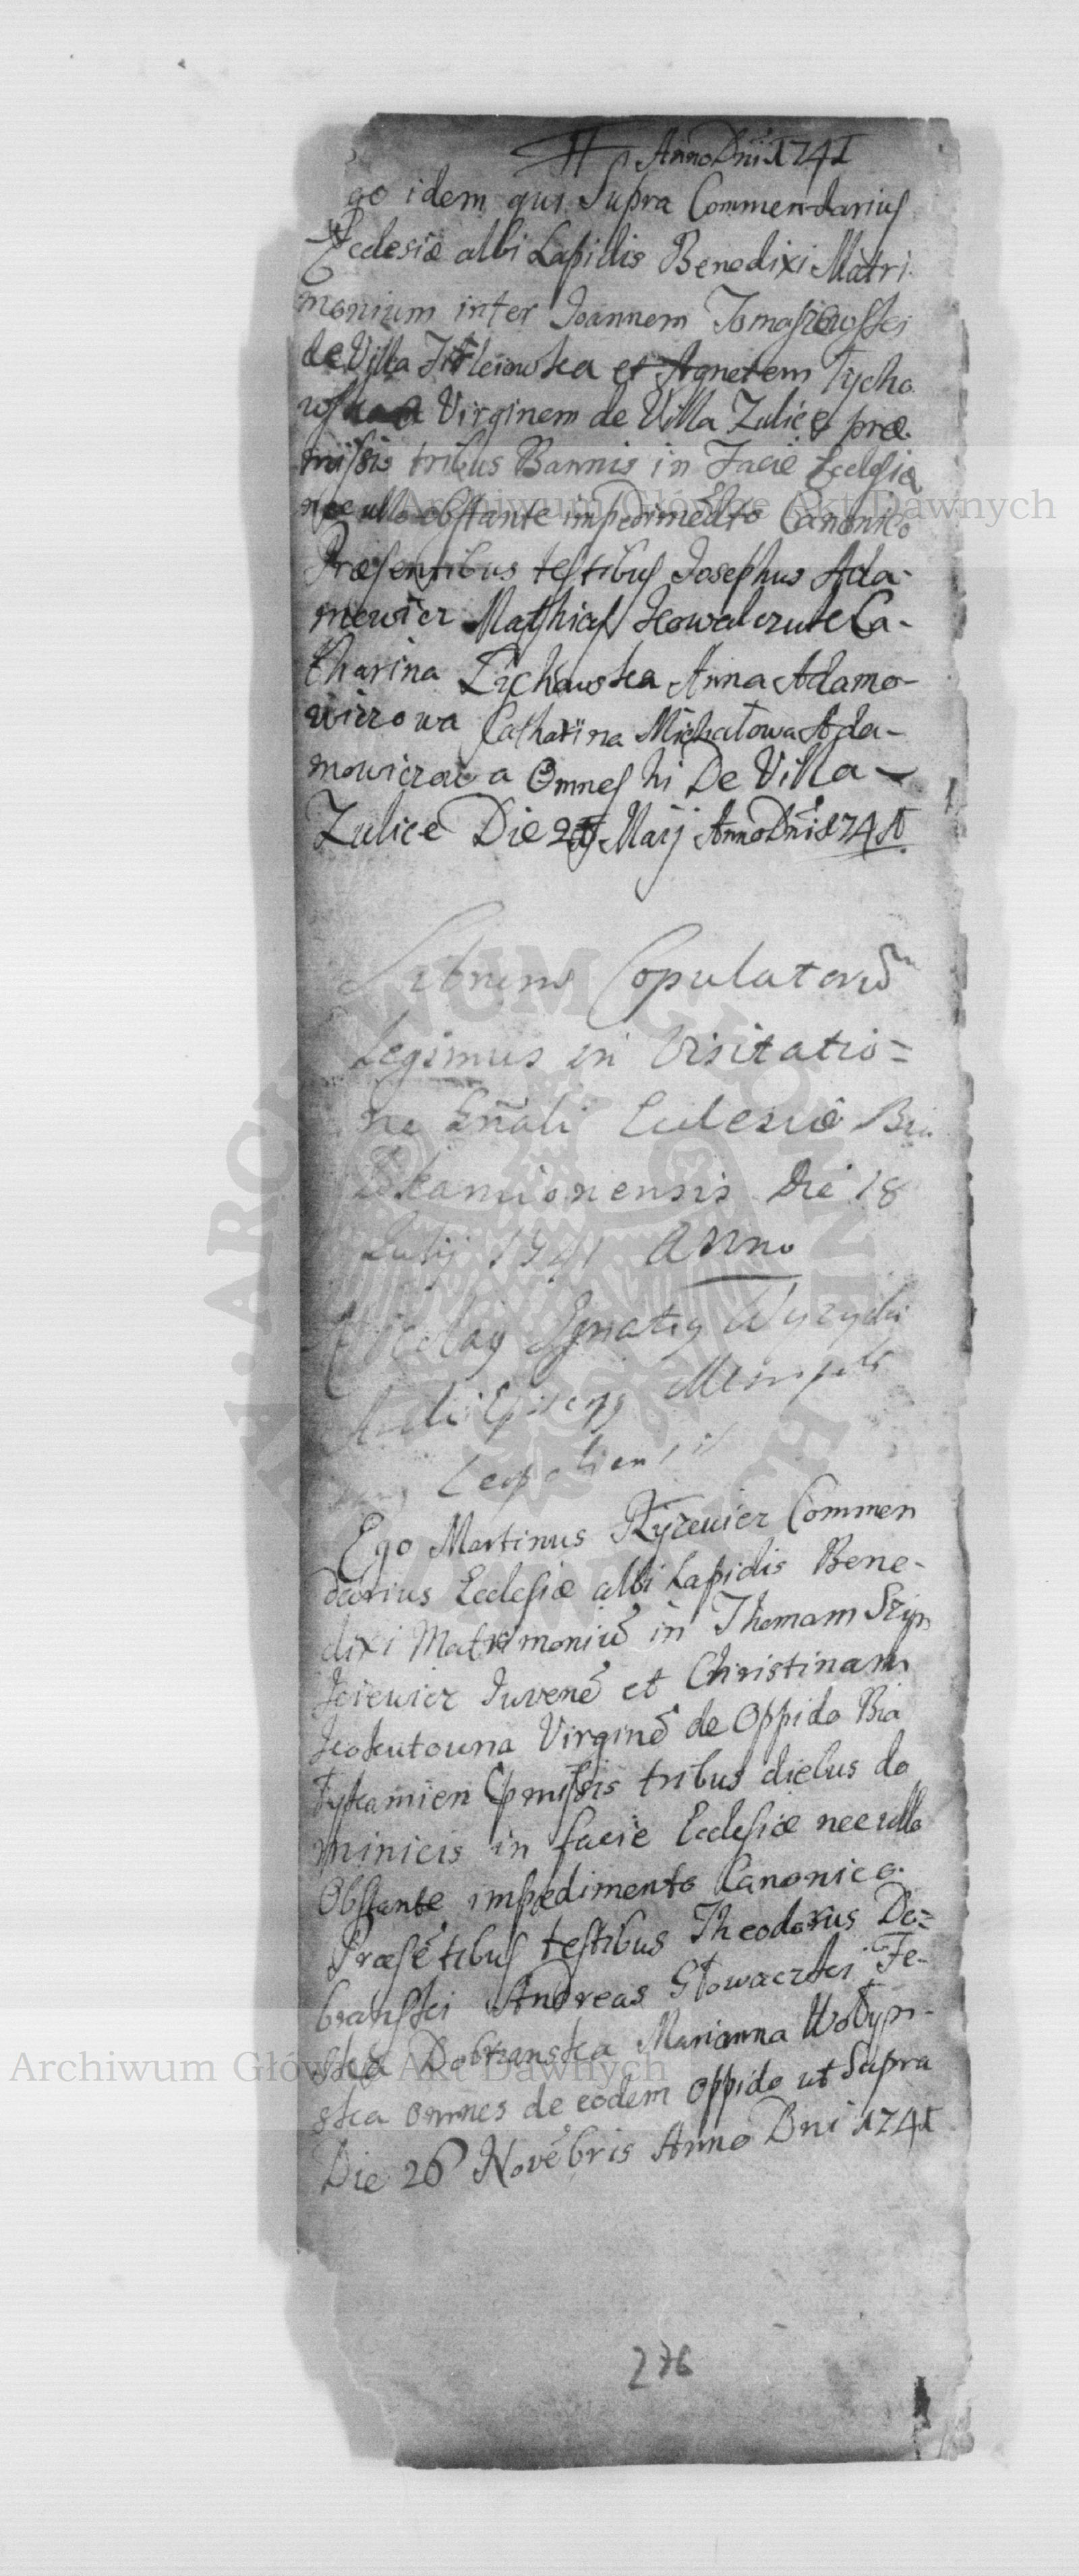 Anno Dni 1741
go idem qui Supra Commendarius
Ecclesiæ albi Lapidis Benedixi Matri
monium inter Joannem Tomaszewski
de Villa et Agnetem Tycho
Virginem de Villa Zulice præ
missis tribus Bannis in Facie Ecclesiæ
nec ullo obstante impedimento Canonico
Præsentibus testibus Josephus Ada-
mowicz Mathias Kowalczuk Ca-
tharina Zychowska Anna Adamo-
wiczowa Catharina Michałowa Ada-
mowiczowa Omnes hi De Villa
Zulice Die Maij Anno Dni 1741
Librum Copulatorũ
Legimus in Visitatio=
ne Gñali Ecclesiæ Bia
łokamionensis Die 18
Julij 1741 Anno
Nicolaus Ignatius Wyzycki
Leopoliensis
Ego Martinus Ryzewicz Commen
darius Ecclesiæ albi Lapidis Bene-
dixi Matrimoniũ in Thomam Szyn
kiewicz Juvenẽ et Christinam
Kokutowna Virginẽ de Oppido Bia
łykamien pmissis tribus diebus do
minicis in facie Ecclesiæ nec ullo
Obstante impedimento Canonico.
Præsẽtibus testibus Theodorus Do=
branski Andreas Głowaczki Te-
Dobranska Marianna Wołyn-
ska omnes de eodem oppido ut Supra
Die 26 Novẽbris Anno Dni 1741
276
Archiwum Główne Akt Dawnych
Archiwum Główne Akt Dawnych